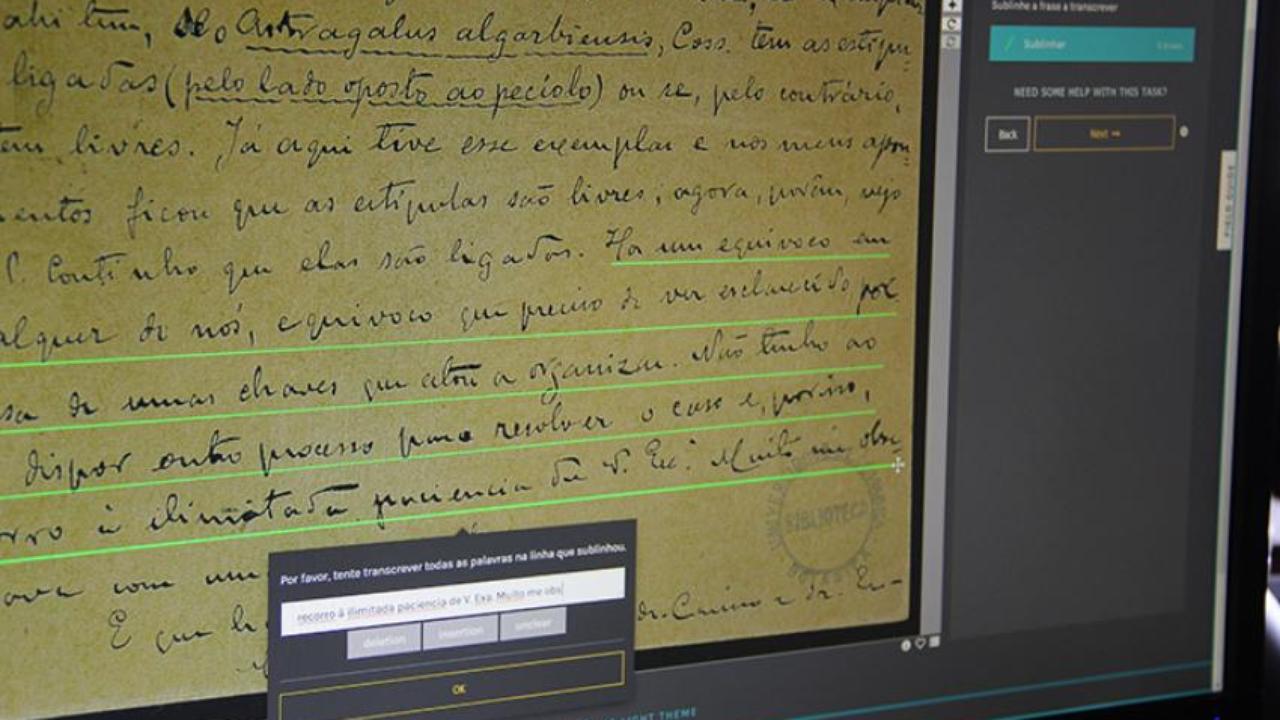 ahi tem, do Astragalus algarbiensis, Coss. tem as estipu-
ligadas (pelo lado oposto ao pecíolo) ou se, pelo contrário,
tem livres. Já aqui tive esse exemplar e nos meus apon-
entos ficou que as estípulas são livres; agora, porém, vejo
P. Coutinho que elas são ligadas. Ha um equivoco em
alquer de nós, equivoco que preciso de ver esclarecido por
sa de umas chaves que estou a organizar. Não tenho ao
dispor outro processo para resolver o caso e, por isso,
rro á ilimitada paciencia de V. Exª. Muito me obse-
com um
E que
dr.
BIBLIOTECA
Por favor, tente transcrever todas as palavras na linha que sublinhou.
recorro á ilimitada paciencia de V. Exa. Muito me obs
deletion insertion unclear
OK
Sublinhe a frase a transcrever
Sublinhar
NEED SOME HELP WITH THIS TASK?
Back Next →
FIELD GUIDE
THEME